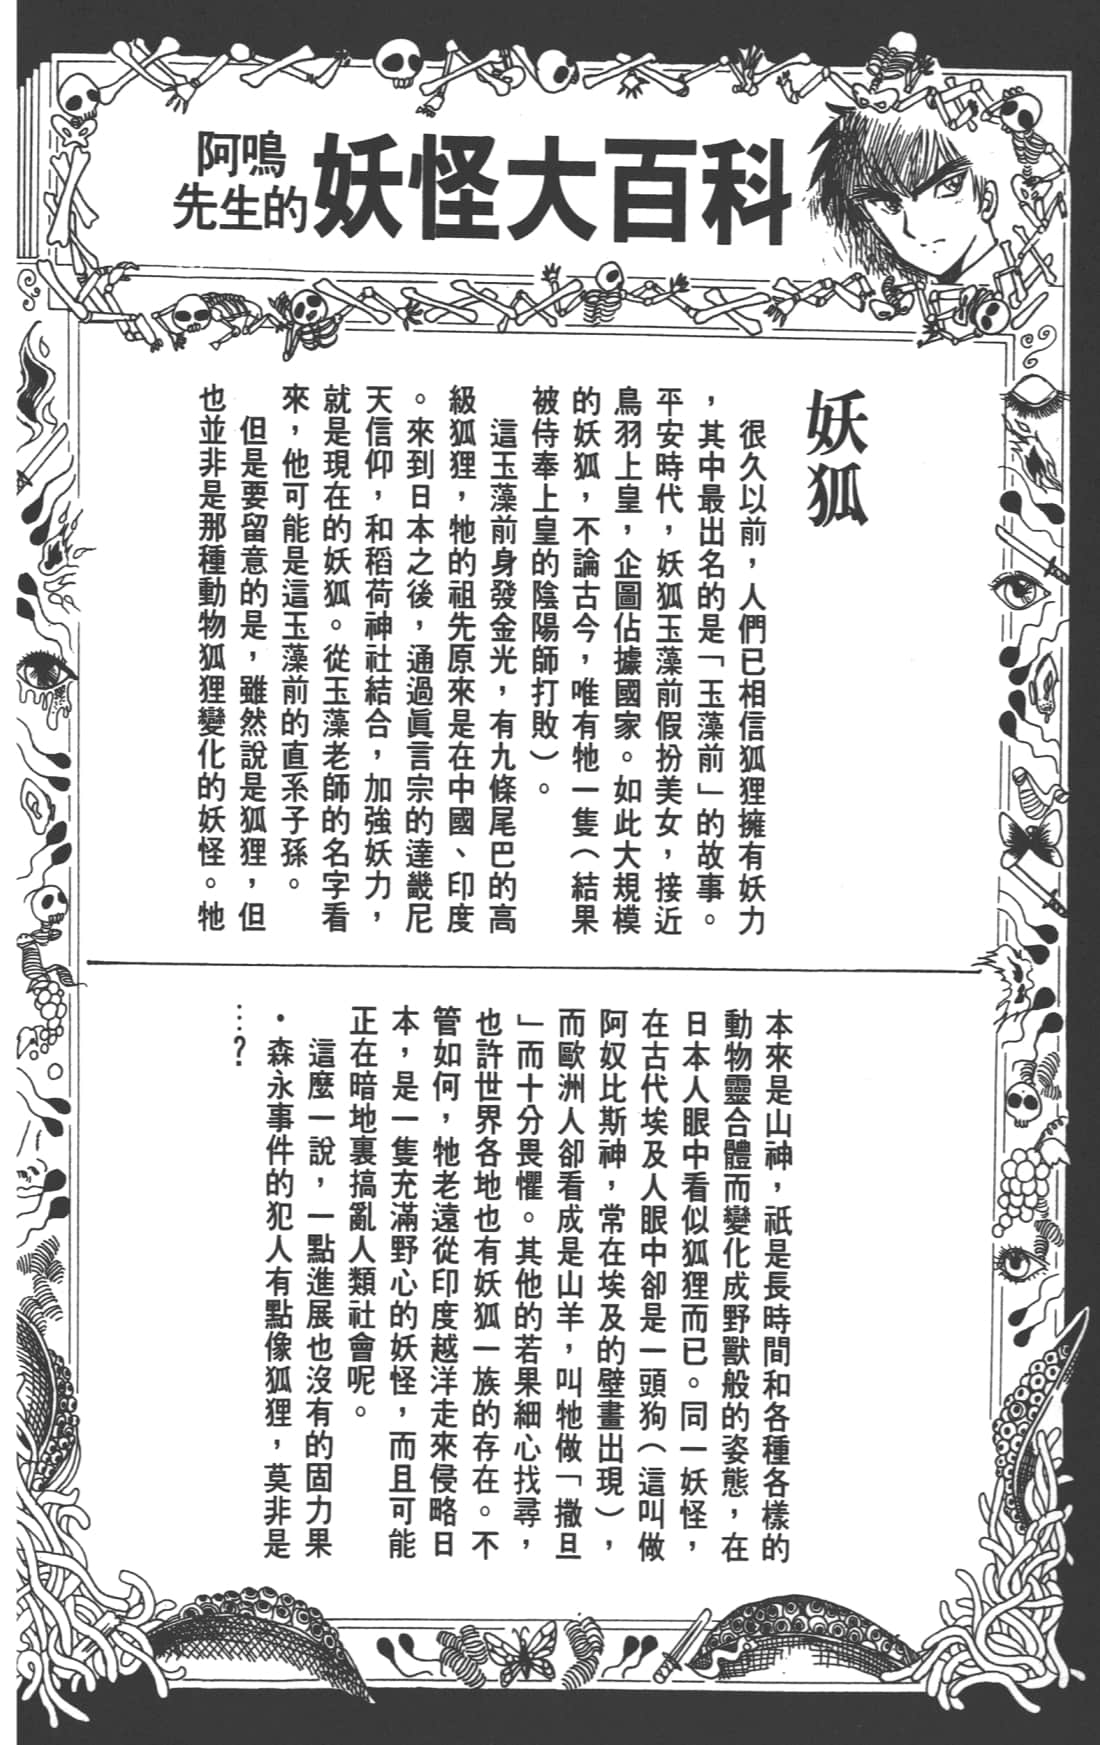 阿鳴
先生的
妖怪大百科
妖狐
很久以前，人們已相信狐狸擁有妖力
，其中最出名的是「玉藻前」的故事。
平安時代，妖狐玉藻前假扮美女，接近
鳥羽上皇，企圖佔據國家。如此大規模
的妖狐，不論古今，唯有牠一隻（結果
被侍奉上皇的陰陽師打敗）。
這玉藻前身發金光，有九條尾巴的高
級狐狸，牠的祖先原來是在中國、印度
。來到日本之後，通過眞言宗的達畿尼
天信仰，和稻荷神社結合，加強妖力，
就是現在的妖狐。從玉藻老師的名字看
來，他可能是這玉藻前的直系子孫。
但是要留意的是，雖然說是狐狸，但
也並非是那種動物狐狸變化的妖怪。牠
本來是山神，祇是長時間和各種各樣的
動物靈合體而變化成野獸般的姿態，在
日本人眼中看似狐狸而已。同一妖怪，
在古代埃及人眼中卻是一頭狗（這叫做
阿奴比斯神，常在埃及的壁畫出現），
而歐洲人卻看成是山羊，叫牠做「撒旦
」而十分畏懼。其他的若果細心找尋，
也許世界各地也有妖狐一族的存在。不
管如何，牠老遠從印度越洋走來侵略日
本，是一隻充滿野心的妖怪，而且可能
正在暗地裏搞亂人類社會呢。
這麼一說，一點進展也沒有的固力果
・森永事件的犯人有點像狐狸，莫非是
…?